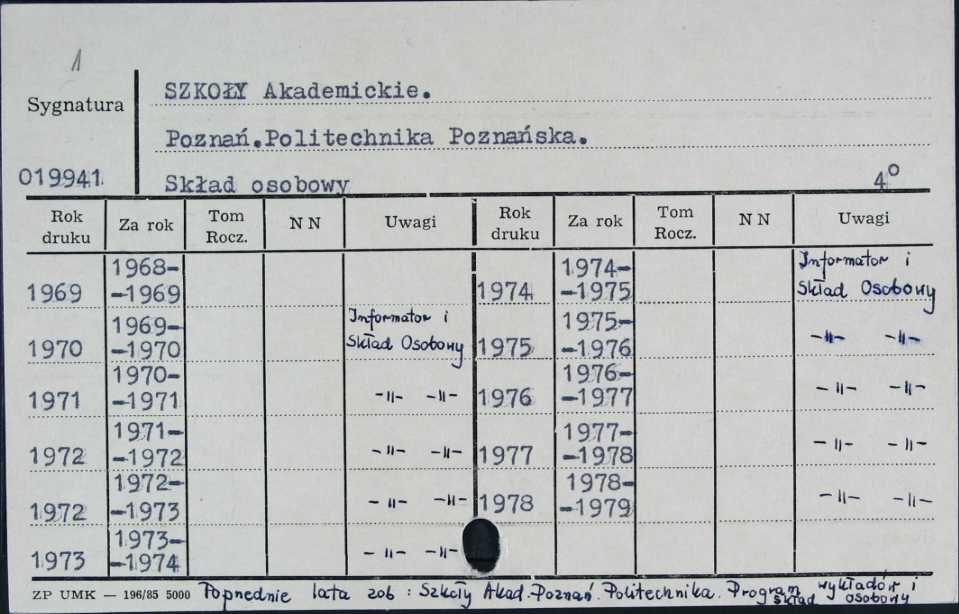 1
SZKOŁY Akademickie.
Sygnatura
Poznań.Politechnika Poznańska.
019941 Skład osobowy 4°
Rok druku Za rok Tom Rocz. N N Uwagi Rok druku Za rok Tom Rocz. N N Uwagi
1969 1968- -1969 1974 1974- -1975 Informator i Skład Osobowy
1970 1969- -1970 Informator i Skład Osobowy 1975 1975- -1976 -〃- -〃-
1971 1970- -1971 -〃- -〃- 1976 1976- -1977 -〃- -〃-
1972 1971- -1972 -〃- -〃- 1977 1977- -1978 -〃- -〃-
1972 1972- -1973 -〃- -〃- 1978 1978- -1979 -〃- -〃-
1973 1973- -1974 -〃- -〃-
ZP UMK — 196/85 5000 Poprzednie lata zob : Szkoły Akad. Poznań. Politechnika. Program wykładów i skład osobowy